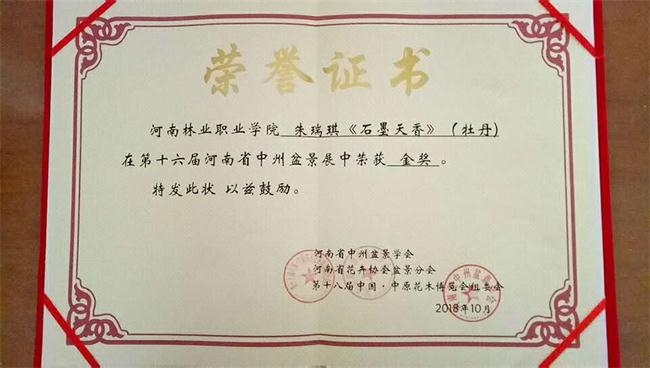 荣誉证书
河南林业职业学院 朱瑞琪《石墨天香》（牡丹）
在第十六届河南省中州盆景展中荣获 金奖 。
特发此状 以兹鼓励。
河南省中州盆景学会
河南省花卉协会盆景分会
第十八届中国·中原花木博览会组委会
2018年10月